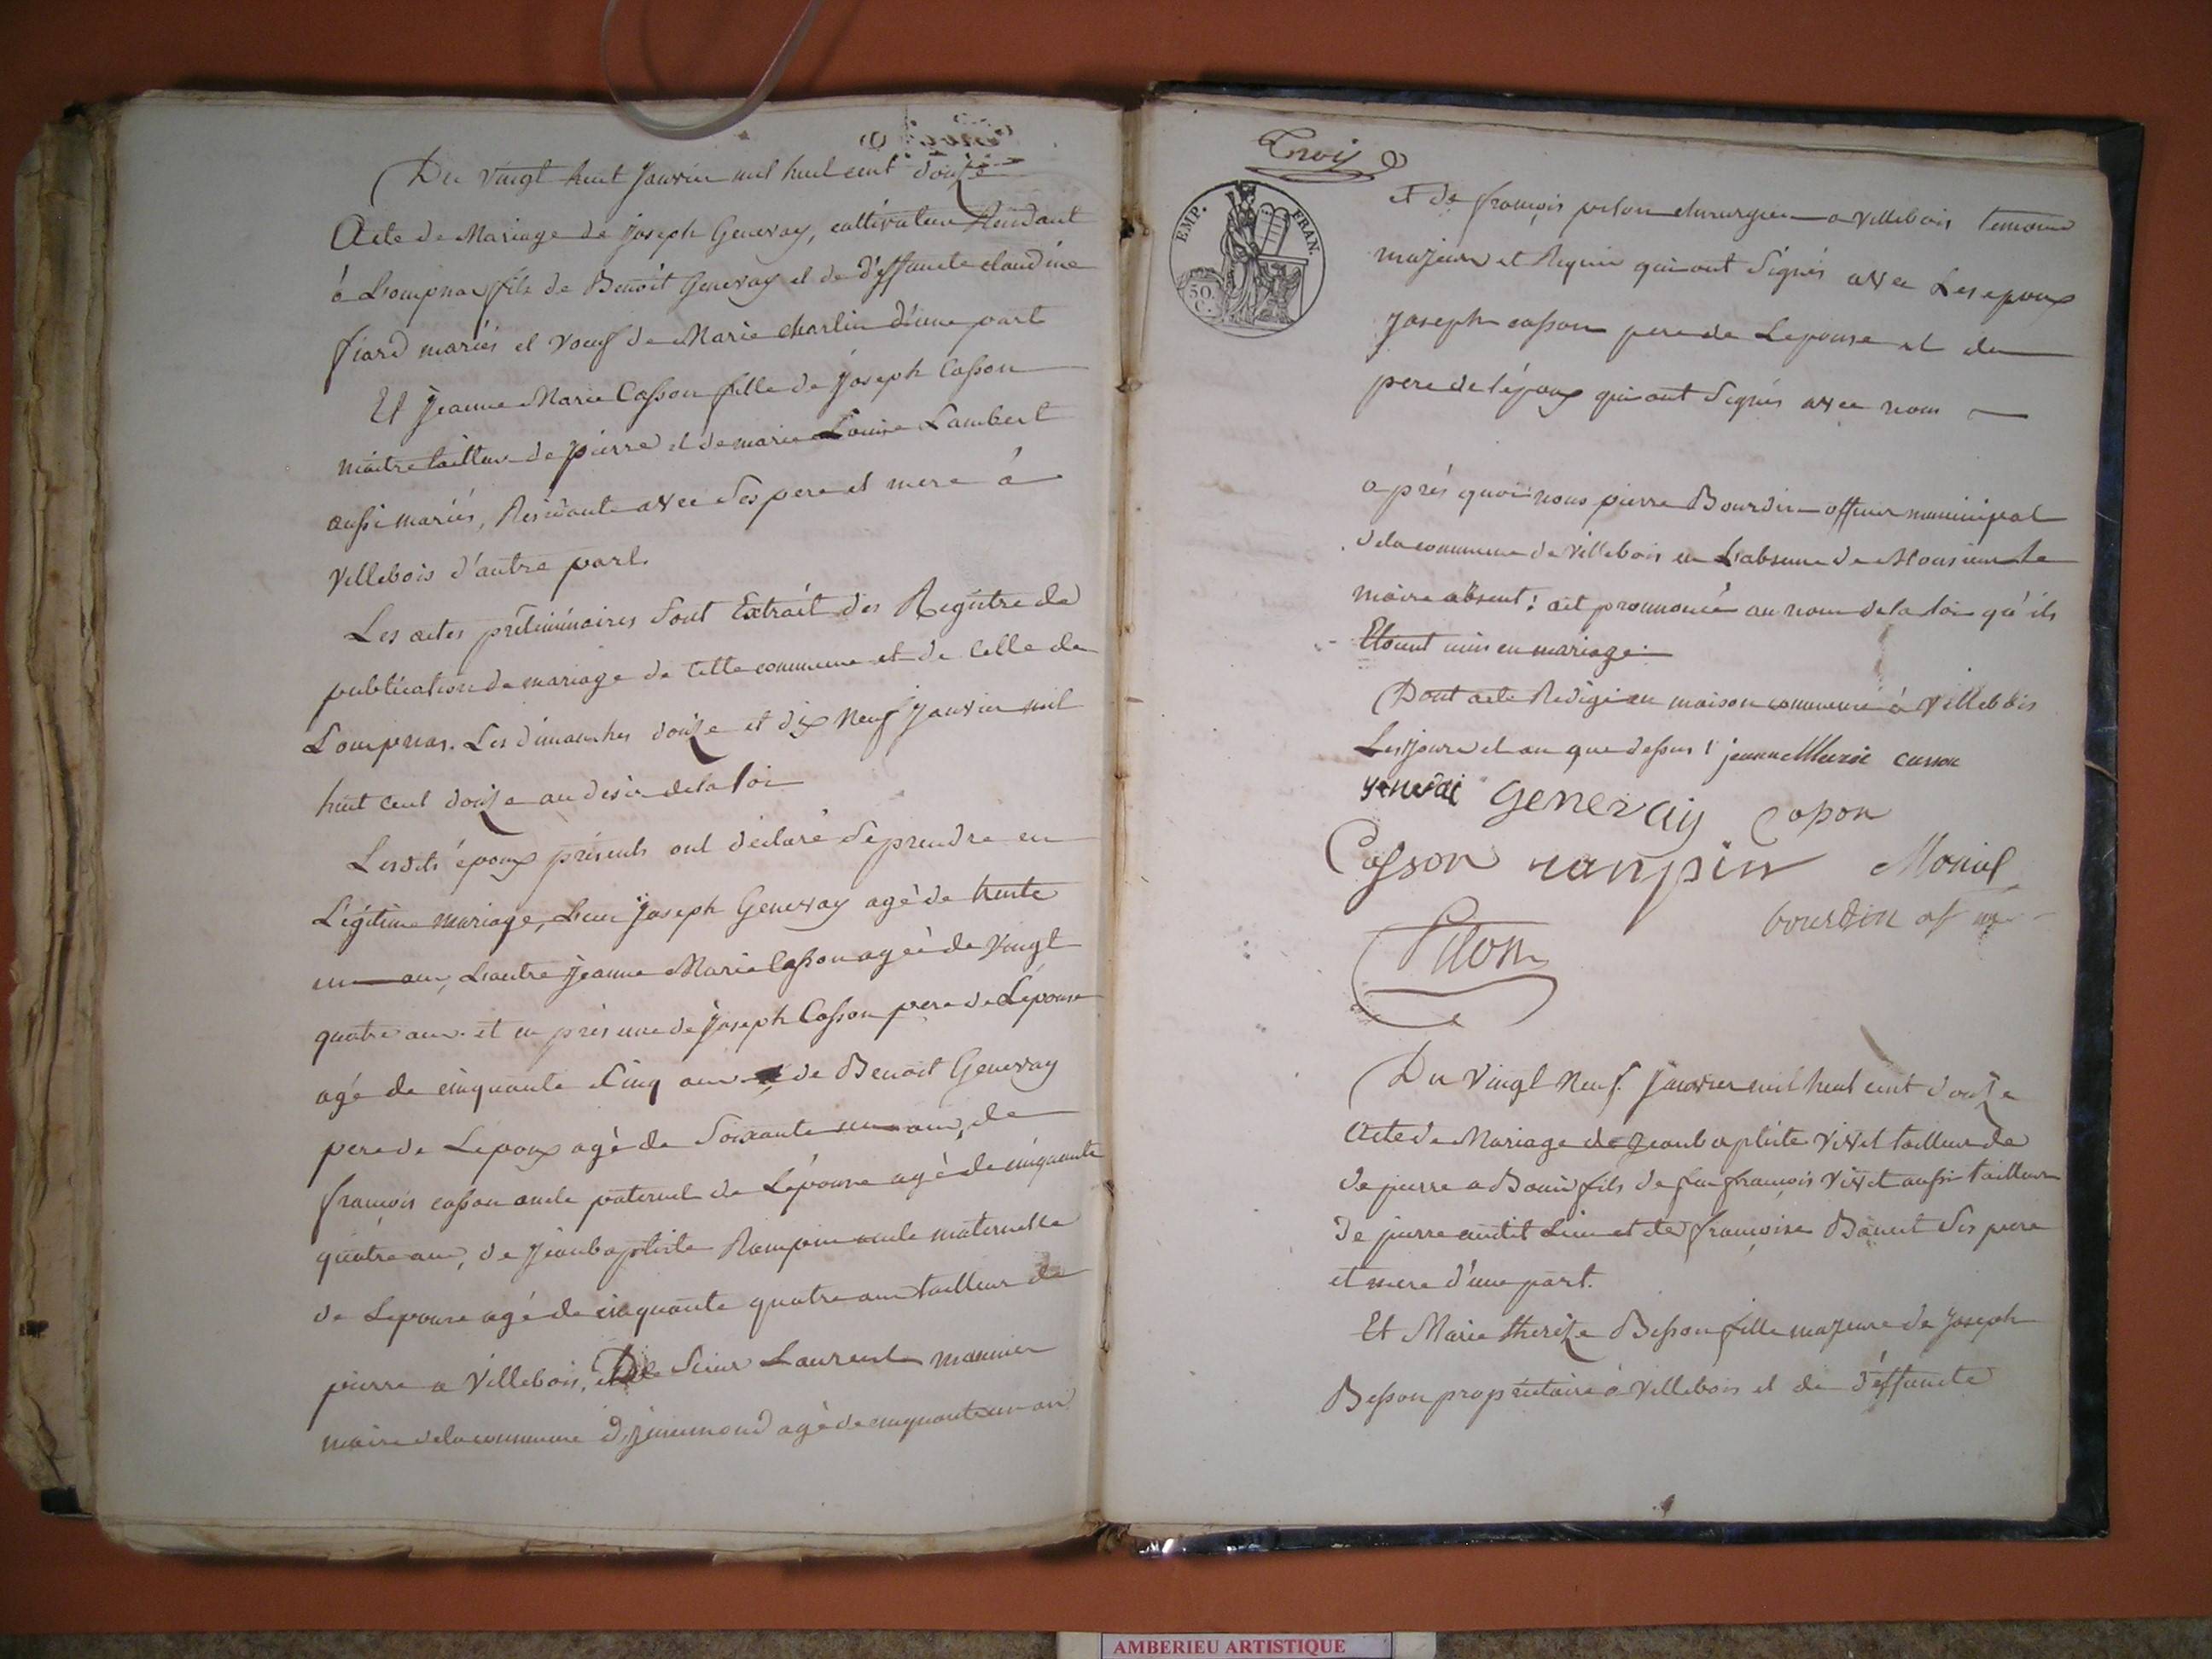 Du vingt huit Janvier mil huit cent douze
Acte de Mariage de Joseph Genevay, cultivateur Residant
à Lompnas fils de Benoît Genevay et de d'effuncte claudine
fiard mariés et voeuf de Marie charlin d'une part
Et Jeanne Marie Casson fille de Joseph Casson
maitre tailleur de pierre et de marie Louise Lambert
aussi mariés, Residante avec ses pere et mere à
Villebois d'autre part.
Les actes préliminaires sont Extrait des Registre de
publication de mariage de cette commune et de Celle de
Lompnas. Les dimanches douze et dix Neuf Janvier mil
huit Cent douze au désir de la loi
Lesdits époux présents ont déclaré se prendre en
Légitime mariage, L'un Joseph Genevay agé de trente
un ans, L'autre Jeanne Marie Casson agée de vingt
quatre ans et en présence de Joseph Casson pere de Lépouse
agé de cinquante Cinq ans de Benoit Genevay
pere de Lepoux agé de Soixante un ans, de
françois casson oncle paternel de Lépouse agé de cinquante
quatre ans, de Jean baptiste Rampin oncle maternelle
de Lepouse agé de cinquante quatre ans tailleur de
pierre a Villebois, De Sieur Laurent monnier
maire de la commune agé de cinquante un an
Trois
EMP. FRAN.
50.
C.
et de françois pilon chirurgien a villebois temoins
majeurs et Requis qui ont signés avec Les epoux
Joseph casson pere de Lepouse et du
pere de l'époux qui ont Signés avec nous
après quoi nous pierre Bourdin officier municipal
de la commune de Villebois en L'absence de Monsieur Le
maire absent: ait prononcé au nom de la loi qu'ils
Etoient unis en mariage
Dont acte Redigé en maison commune à Villebois
Les Jours et an que dessus jeanne Marie casson
genevai Genevay Cason
Casson ranpin Moniel
bourdin of m
Pilon
Du Vingt Neuf Janvier mil huit cent douze
Acte de Mariage de Jean baptiste Vivet tailleur de
de pierre a Bouis fils de feu françois Vivet aussi tailleur
de pierre audit Lieu et de françoise ses pere
et mere d'une part.
Et Marie thereze Besson fille majeure de Joseph
Besson proprietaire à Villebois et de d'effuncte
AMBERIEU ARTISTIQUE